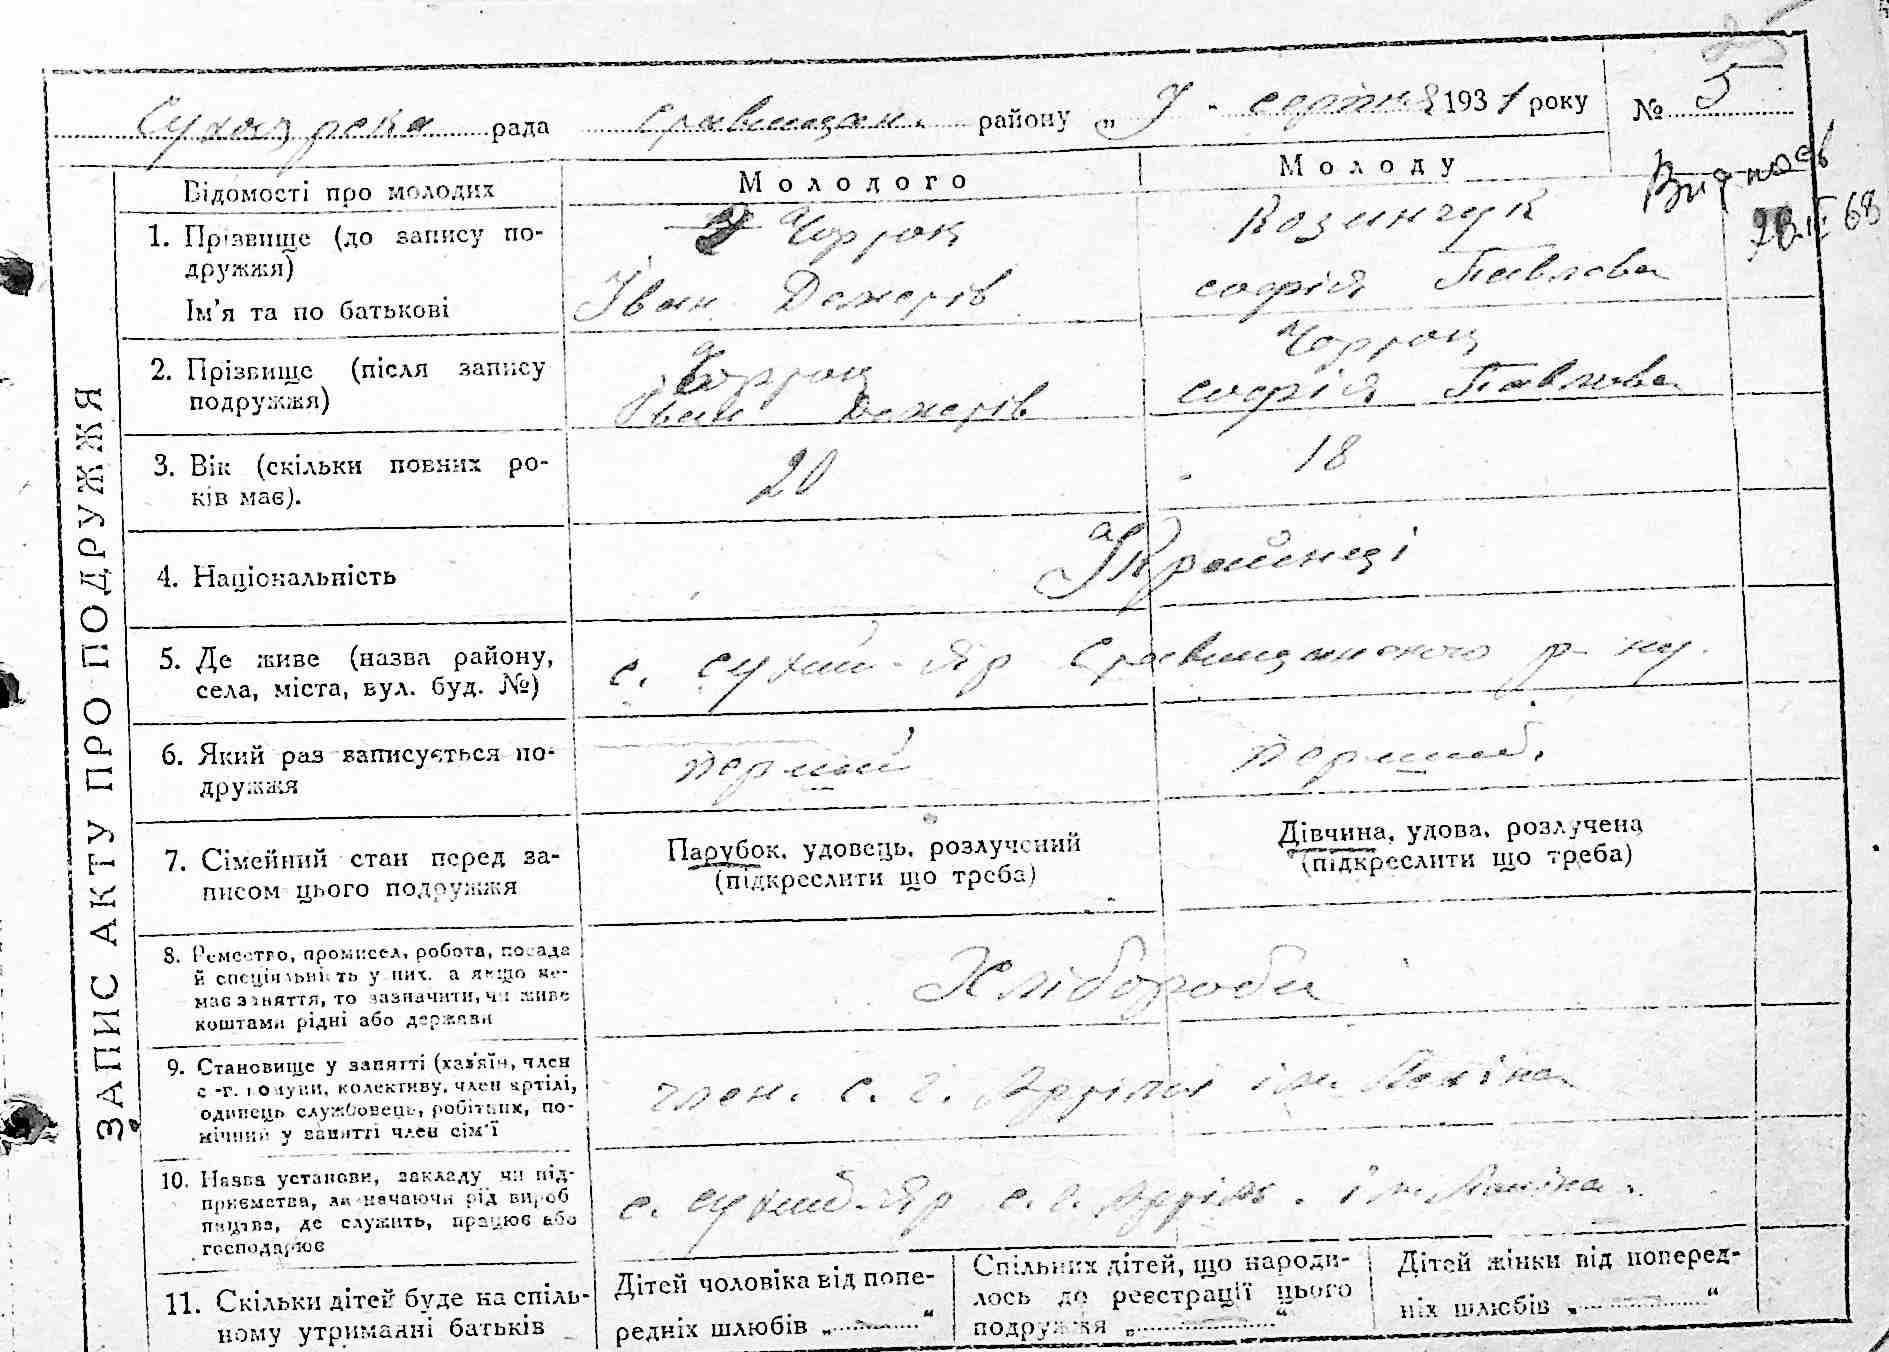 рада району „ серпня 1931 року № 5
Відомості про молодих Молодого Молоду
1. Прізвище (до запису по-
дружжя)
Ім'я та по батькові
Чорток Козинчук
Іван софія Павлова
2. Прізвище (після запису
подружжя)
Іван софія Павлова
3. Вік (скільки повних ро-
ків має). 20 18
4. Національність Українці
5. Де живе (назва району,
села, міста, вул. буд. №) с. Сухий-Яр Ставищанского р-ну.
6. Який раз записується по-
дружжя перший перший.
7. Сімейний стан перед за-
писом цього подружжя
Парубок, удовець, розлучений
(підкреслити що треба)
Дівчина, удова, розлучена
(підкреслити що треба)
8. Ремество, промисел, робота, посада
й спеціяльність у них, а якщо не-
має заняття, то зазначити, чи живе
коштами рідні або держави
Хлібороби
9. Становище у занятті (хазяїн, член
с.-г. комуни, колективу, член артілі,
одинець службовець, робітник, по-
мічний у занятті член сім'ї
член. с. г. Артілі ім. Леніна
10. Назва установи, закладу чи під-
приємства, зазначаючи рід вироб
ництва, де служить, працює або
господарює
с. Сухий-Яр с. г. Артіль. ім. Леніна.
11. Скільки дітей буде на спіль-
ному утриманні батьків
Дітей чоловіка від попе-
редніх шлюбів „ “
Спільних дітей, що народи-
лось до реєстрації цього
подружжя „ “
Дітей жінки від поперед-
ніх шлюбів „ “
ЗАПИС АКТУ ПРО ПОДРУЖЖЯ